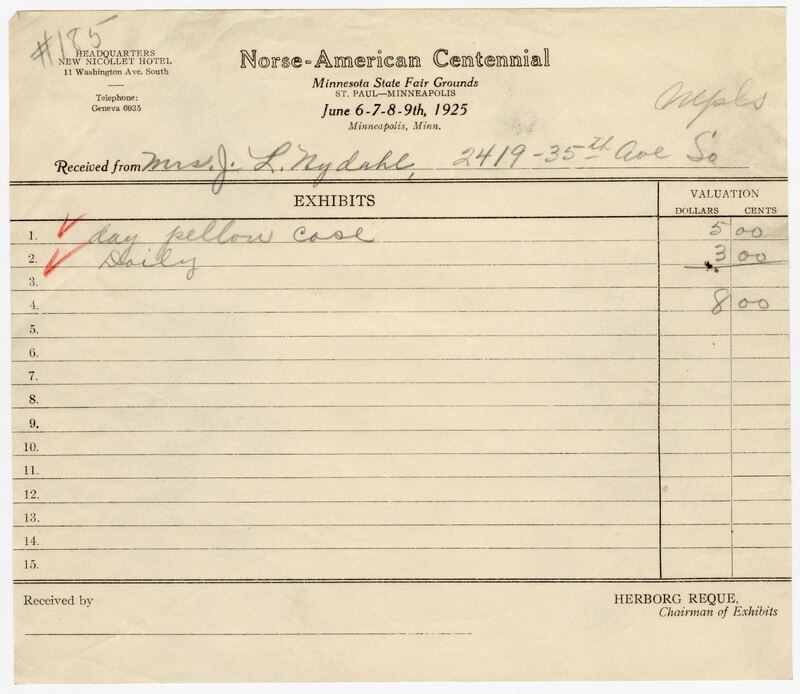 #185
HEADQUARTERS
NEW NICOLLET HOTEL
11 Washington Ave. South
Telephone:
Geneva 6935
Norse-American Centennial
Minnesota State Fair Grounds
ST. PAUL—MINNEAPOLIS
June 6-7-8-9th, 1925
Minneapolis, Minn.
Mpls
Received from Mrs. J. L. Nydahl, 2419-35th Ave So
EXHIBITS
VALUATION
DOLLARS CENTS
1. day pellow case 5 00
2. Doily 3 00
3.
4. 8 00
5.
6.
7.
8.
9.
10.
11.
12.
13.
14.
15.
Received by
HERBORG REQUE,
Chairman of Exhibits